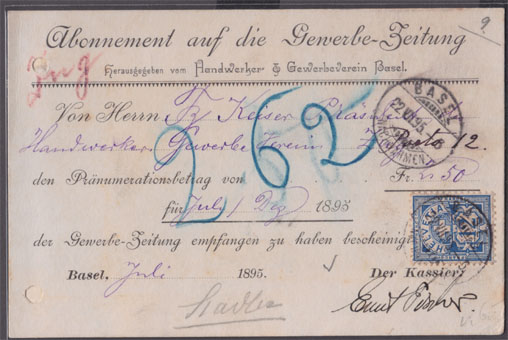 9.
Abonnement auf die Gewerbe-Zeitung
Herausgegeben vom Handwerker- & Gewerbeverein Basel.
Von Herrn Fz Kaiser Präsident
Handwerker Gewerbe Verein 12.
2.62
BASEL
22.VII.95
den Pränumerationsbetrag von Fr. 2.50
für Juli / Dez 1895
der Gewerbe-Zeitung empfangen zu haben bescheinigt
HELVETIA
Basel, Juli 1895. Der Kassier:
Stadler